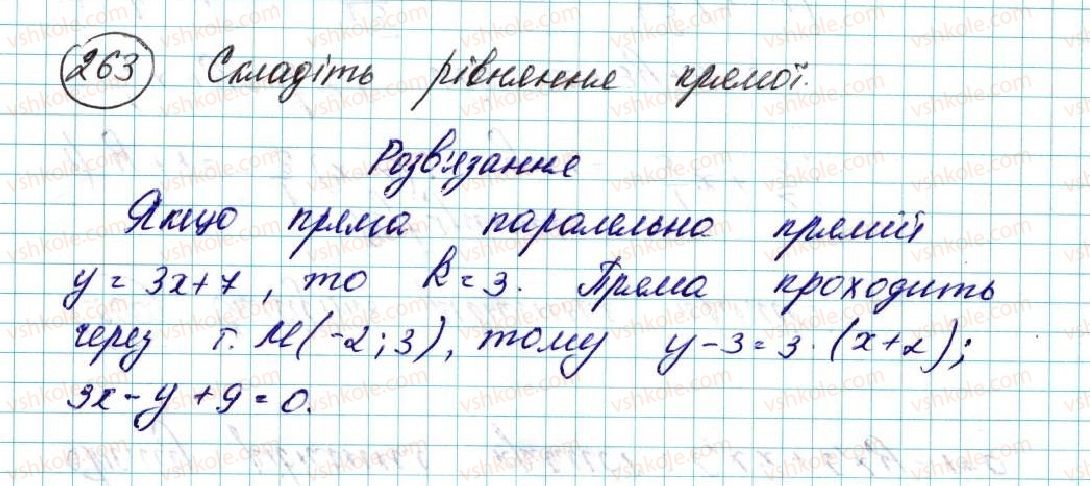 263 Складіть рівняння прямої.
Розв'язання
Якщо пряма паралельна прямій
y = 3x+7, то k = 3. Пряма проходить
через т. M(-2;3), тому y-3 = 3·(x+2);
3x-y+9=0.